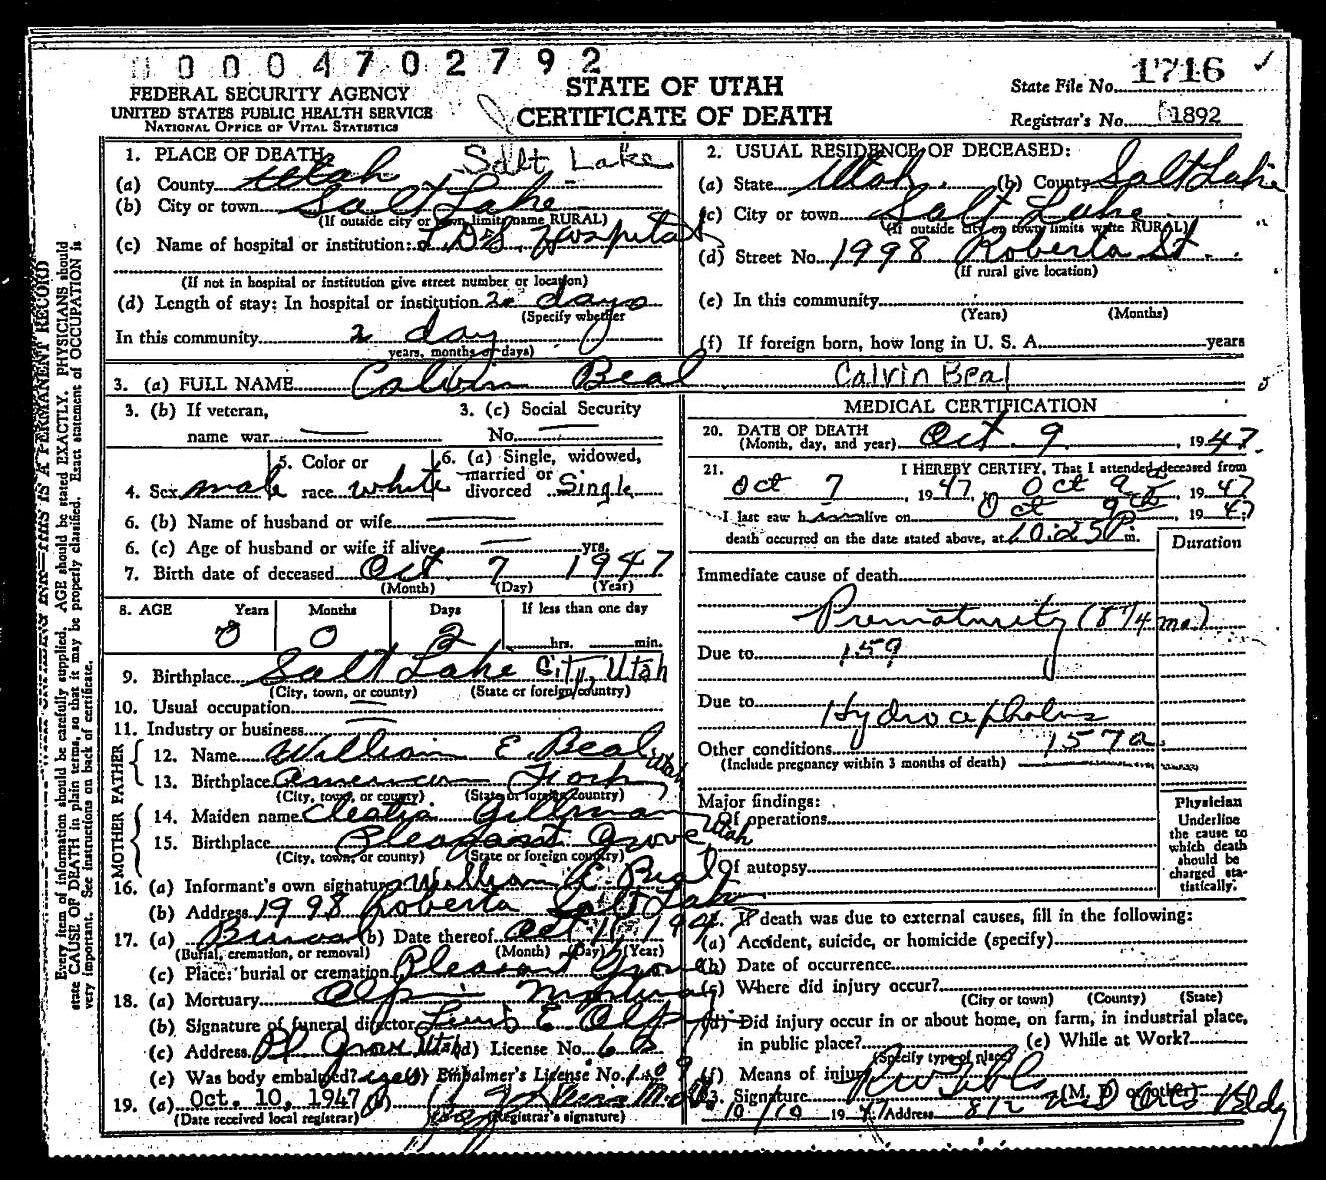 0004702792
FEDERAL SECURITY AGENCY
UNITED STATES PUBLIC HEALTH SERVICE
NATIONAL OFFICE OF VITAL STATISTICS
STATE OF UTAH
CERTIFICATE OF DEATH
State File No. 1716 ✓
Registrar's No. 1892
Every item of information should be carefully supplied. AGE should be stated EXACTLY. PHYSICIANS should
state CAUSE OF DEATH in plain terms, so that it may be properly classified. Exact statement of OCCUPATION is
very important. See instructions on back of certificate.
THIS IS A PERMANENT RECORD
1. PLACE OF DEATH Salt Lake
(a) County Utah
(b) City or town Salt Lake
(If outside city or town limits name RURAL)
(c) Name of hospital or institution: L.D.S. Hospital
(If not in hospital or institution give street number or location)
(d) Length of stay: In hospital or institution 2 days
(Specify whether
In this community 2 day
years, months or days)
2. USUAL RESIDENCE OF DECEASED:
(a) State Utah (b) County Salt Lake
(c) City or town Salt Lake
(If outside city or town limits write RURAL)
(d) Street No. 1998 Roberta St.
(If rural give location)
(e) In this community
(Years) (Months)
(f) If foreign born, how long in U. S. A. years
3. (a) FULL NAME Calvin Beal Calvin Beal
3. (b) If veteran,
name war
3. (c) Social Security
No.
4. Sex male
5. Color or
race white
6. (a) Single, widowed,
married or
divorced Single
6. (b) Name of husband or wife
6. (c) Age of husband or wife if alive yrs.
7. Birth date of deceased Oct 7 1947
(Month) (Day) (Year)
8. AGE Years Months Days If less than one day
0 0 2 hrs. min.
9. Birthplace Salt Lake City, Utah
(City, town, or county) (State or foreign country)
10. Usual occupation
11. Industry or business
FATHER
12. Name William E. Beal
13. Birthplace American Fork Utah
(City, town, or county) (State or foreign country)
MOTHER
14. Maiden name Gillman
15. Birthplace Pleasant Grove Utah
(City, town, or county) (State or foreign country)
16. (a) Informant's own signature William E. Beal
(b) Address 1998 Roberta Salt Lake
17. (a) Burial (b) Date thereof Oct 11 1947
(Burial, cremation, or removal) (Month) (Day) (Year)
(c) Place: burial or cremation Pleasant Grove
18. (a) Mortuary Mortuary
(b) Signature of funeral director
(c) Address Pl Grove Utah (d) License No.
(e) Was body embalmed? yes (f) Embalmer's License No.
19. (a) Oct. 10, 1947 (b)
(Date received local registrar) (Registrar's signature)
MEDICAL CERTIFICATION
20. DATE OF DEATH
(Month, day, and year) Oct. 9, 1947.
21. I HEREBY CERTIFY, That I attended deceased from
Oct 7, 1947, Oct 9th, 1947
I last saw him alive on Oct 9th, 1947
death occurred on the date stated above, at 10:25 P. m.
Duration
Immediate cause of death
Prematurity (8 1/4 mo.)
Due to 159
Due to Hydrocephalus
157a
Other conditions
(Include pregnancy within 3 months of death)
Major findings:
Of operations
Of autopsy
Physician
Underline
the cause to
which death
should be
charged sta-
tistically.
If death was due to external causes, fill in the following:
(a) Accident, suicide, or homicide (specify)
(b) Date of occurrence
(c) Where did injury occur?
(City or town) (County) (State)
(d) Did injury occur in or about home, on farm, in industrial place,
in public place? (e) While at Work?
(Specify type of place)
(f) Means of injury
23. Signature (M. D. or other)
10/10 1947 Address 812 Bldg